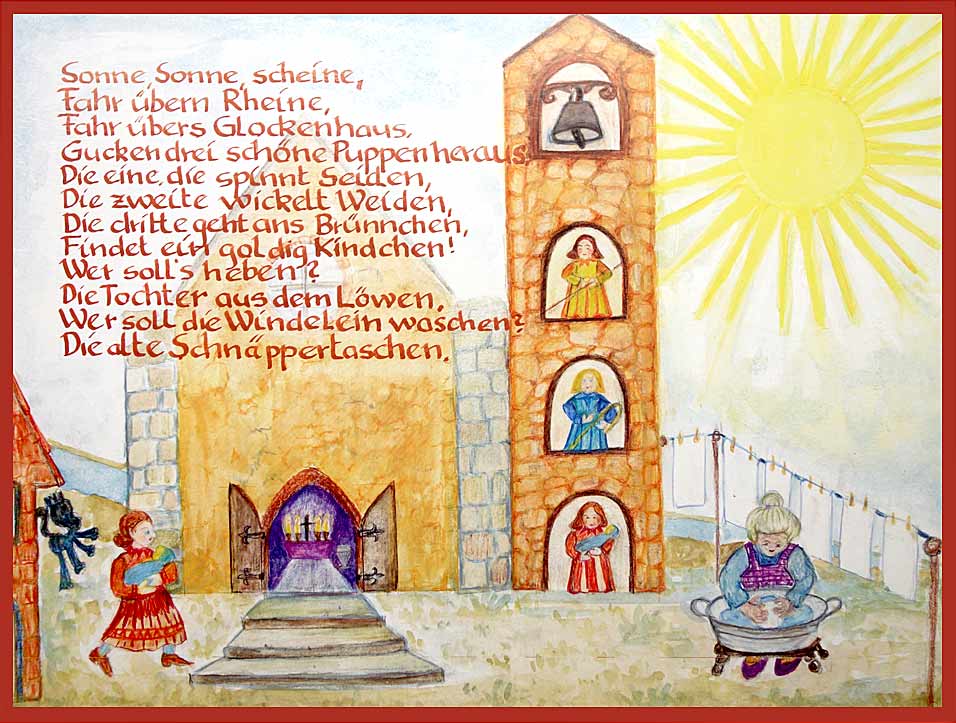 Sonne, Sonne, scheine,
Fahr übern Rheine,
Fahr übers Glockenhaus,
Gucken drei schöne Puppen heraus.
Die eine, die spinnt Seiden,
Die zweite wickelt Weiden,
Die dritte geht ans Brünnchen,
Findet ein goldig Kindchen!
Wer soll's heben?
Die Tochter aus dem Löwen.
Wer soll die Windelein waschen?
Die alte Schnäppertaschen.